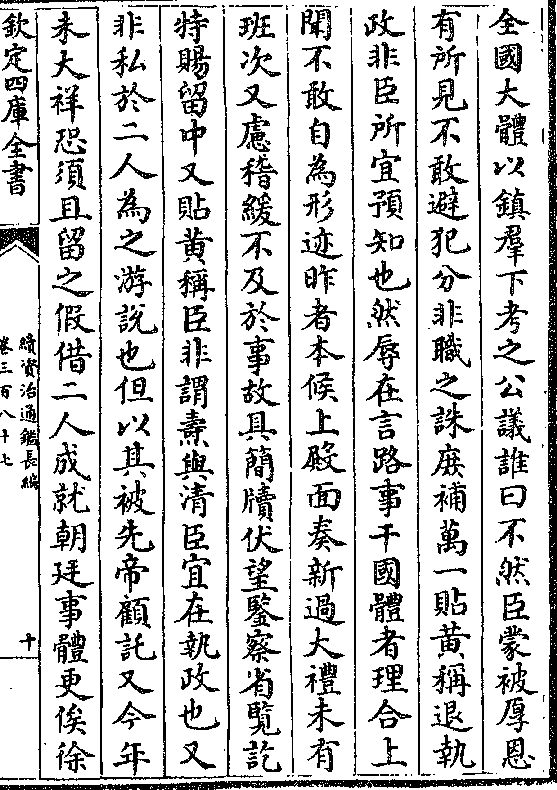 全國大體以鎮羣下考之公議誰曰不然臣蒙被厚恩
有所見不敢避犯分非職之誅庶補萬一貼黄稱退執
政非臣所宜預知也然辱在言路事干國體者理合上
聞不敢自為形迹昨者本候上殿面奏新過大禮未有
班次又慮稽緩不及於事故具簡牘伏望鑒察省覽訖
特賜留中又貼黄稱臣非謂燾與清臣宜在執政也又
非私於二人為之游說也但以其被先帝顧託又今年
未大祥恐須且留之假借二人成就朝廷事體更俟徐
欽定四庫全書
續資治通鑑長編
卷三百八十七
十